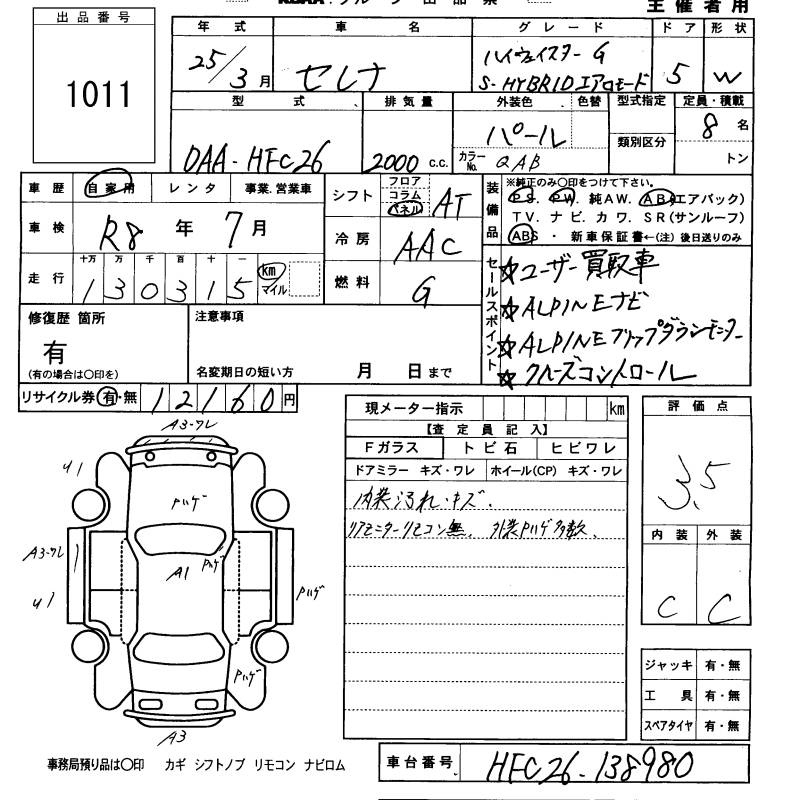 出品番号
1011
主催者用
年式 車名 グレード ドア 形状
25/3月 セレナ ハイウェイスターG
S-HYBRIDエアロモード 5 W
型式 排気量 外装色 色替 型式指定 定員・積載
DAA-HFC26 2000 c.c. パール 類別区分 8名
カラーNo. QAB トン
車歴 自家用 レンタ 事業.営業車
車検 R8年7月
走行 十万 万 千 百 十 一
130315 km マイル
シフト フロア コラム パネル AT
冷房 AAC
燃料 G
装備品
※純正のみ○印をつけて下さい。
PS. PW. 純AW. AB(エアバック)
TV. ナビ. カワ. SR(サンルーフ)
ABS・新車保証書←(注)後日送りのみ
セールスポイント
☆ユーザー買取車
☆ALPINEナビ
☆ALPINEフリップダウンモニター
☆クルーズコントロール
修復歴 箇所
有
(有の場合は○印を)
注意事項
名変期日の短い方 月 日まで
リサイクル券 有・無 12160円
現メーター指示 km
【査定員記入】
Fガラス トビ石 ヒビワレ
ドアミラー キズ・ワレ ホイール(CP) キズ・ワレ
内装汚れ・キズ.
リアモニターリモコン無. 外装Pハゲ多数.
評価点
3.5
内装 外装
C C
A3-ワレ
Pハゲ
A3-ワレ
A1
Pハゲ
Pハゲ
Pハゲ
A3
ジャッキ 有・無
工具 有・無
スペアタイヤ 有・無
事務局預り品は○印 カギ シフトノブ リモコン ナビロム
車台番号 HFC26-138980